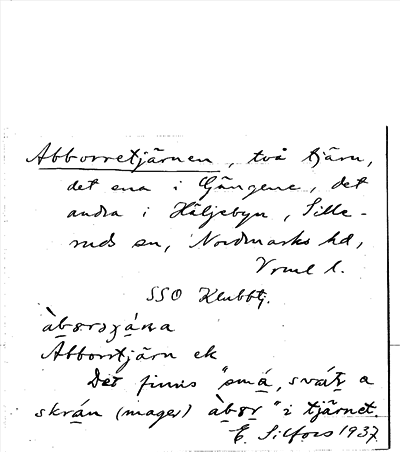 Abborretjärnen, två tjärn,
det ena i Gängene, det
andra i Häljebyn, Sille-
ruds sn, Nordmarks hd,
Vrml l.
SSO Klubbtj.
Abborrtjärn ek
Det finns "små, svátʒ a
skrán (mager) àbɐr" i tjärnet.
E. Silfors 1937